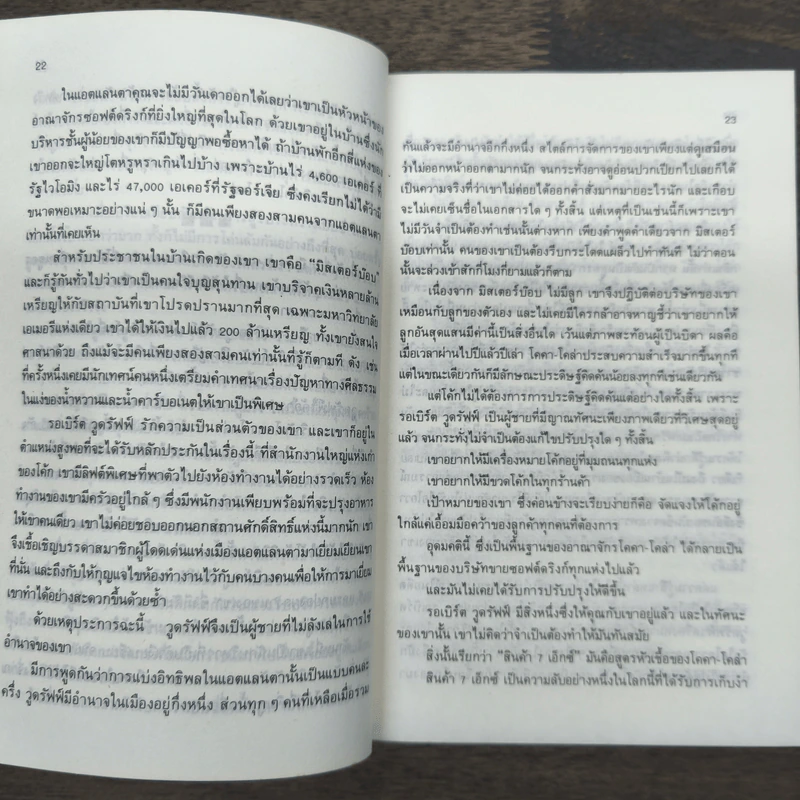 22
ในแอตแลนตาคุณจะไม่มีวันเดาออกได้เลยว่าเขาเป็นหัวหน้าของ
อาณาจักรซอฟต์ดริงก์ที่ยิ่งใหญ่ที่สุดในโลก ด้วยเขาอยู่ในบ้านซึ่งนัก
บริหารชั้นผู้น้อยของเขาก็มีปัญญาพอซื้อหาได้ ถ้าบ้านพักอีกสี่แห่งของ
เขาออกจะใหญ่โตหรูหราเกินไปบ้าง เพราะบ้านไร่ 4,600 เอเคอร์ ที่
รัฐไวโอมิง และไร่ 47,000 เอเคอร์ที่รัฐจอร์เจีย ซึ่งคงเรียกไม่ได้ว่ามี
ขนาดพอเหมาะอย่างแน่ ๆ นั้น ก็มีคนเพียงสองสามคนจากแอตแลนตา
เท่านั้นที่เคยเห็น
สำหรับประชาชนในบ้านเกิดของเขา เขาคือ "มิสเตอร์บ๊อบ"
และก็รู้กันทั่วไปว่าเขาเป็นคนใจบุญสุนทาน เขาบริจาคเงินหลายล้าน
เหรียญให้กับสถาบันที่เขาโปรดปรานมากที่สุด เฉพาะมหาวิทยาลัย
เอเมอรี่แห่งเดียว เขาได้ให้เงินไปแล้ว 200 ล้านเหรียญ ทั้งเขายังสนใจ
ศาสนาด้วย ถึงแม้จะมีคนเพียงสองสามคนเท่านั้นที่รู้ก็ตามที ดัง เช่น
ที่ครั้งหนึ่งเคยมีนักเทศน์คนหนึ่งเตรียมคำเทศนาเรื่องปัญหาทางศีลธรรม
ในแง่ของน้ำหวานและน้ำคาร์บอเนตให้เขาเป็นพิเศษ
รอเบิร์ต วูดรัฟฟ์ รักความเป็นส่วนตัวของเขา และเขาก็อยู่ใน
ตำแหน่งสูงพอที่จะได้รับหลักประกันในเรื่องนี้ ที่สำนักงานใหญ่แห่งเก่า
ของโค้ก เขามีลิฟต์พิเศษที่พาตัวไปยังห้องทำงานได้อย่างรวดเร็ว ห้อง
ทำงานของเขามีครัวอยู่ใกล้ ๆ ซึ่งมีพนักงานเพียบพร้อมที่จะปรุงอาหาร
ให้เขาคนเดียว เขาไม่ค่อยชอบออกนอกสถานศักดิ์สิทธิ์แห่งนี้มากนัก เขา
จึงเชื้อเชิญบรรดาสมาชิกผู้โดดเด่นแห่งเมืองแอตแลนตามาเยี่ยมเยียนเขา
ที่นั่น และถึงกับให้กุญแจไขห้องทำงานไว้กับคนบางคนเพื่อให้การมาเยี่ยม
เขาทำได้อย่างสะดวกขึ้นด้วยซ้ำ
ด้วยเหตุประการฉะนี้ วูดรัฟฟ์จึงเป็นผู้ชายที่ไม่ลังเลในการใช้
อำนาจของเขา
มีการพูดกันว่าการแบ่งอิทธิพลในแอตแลนตานั้นเป็นแบบคนละ
ครึ่ง วูดรัฟฟ์มีอำนาจในเมืองอยู่กึ่งหนึ่ง ส่วนทุก ๆ คนที่เหลือเมื่อรวม
23
กันแล้วจะมีอำนาจอีกกึ่งหนึ่ง สไตล์การจัดการของเขาเพียงแต่ดูเสมือน
ว่าไม่ออกหน้าออกตามากนัก จนกระทั่งอาจดูอ่อนปวกเปียกไปเลยก็ได้
เป็นความจริงที่ว่าเขาไม่ค่อยได้ออกคำสั่งมากมายอะไรนัก และเกือบ
จะไม่เคยเซ็นชื่อในเอกสารใด ๆ ทั้งสิ้น แต่เหตุที่เป็นเช่นนี้ก็เพราะเขา
ไม่มีวันจำเป็นต้องทำเช่นนั้นต่างหาก เพียงคำพูดคำเดียวจาก มิสเตอร์
บ๊อบเท่านั้น คนของเขาเป็นต้องรีบกระโดดแผล็วไปทำทันที ไม่ว่าตอน
นั้นจะล่วงเข้าสักกี่โมงกี่ยามแล้วก็ตาม
เนื่องจาก มิสเตอร์บ๊อบ ไม่มีลูก เขาจึงปฏิบัติต่อบริษัทของเขา
เหมือนกับลูกของตัวเอง และยังไม่เคยมีใครกล้าอาจหาญชี้ว่าเขาอยากให้
ลูกอันสุดแสนมีค่านี้เป็นสิ่งอื่นใด เว้นแต่ภาพสะท้อนผู้เป็นบิดา ผลคือ
เมื่อเวลาผ่านไปปีแล้วปีเล่า โคคา-โคล่าประสบความสำเร็จมากขึ้นทุกที
แต่ในขณะเดียวกันก็มีลักษณะประดิษฐ์คิดค้นน้อยลงทุกทีเช่นเดียวกัน
แต่โค้กไม่ได้ต้องการการประดิษฐ์คิดค้นแต่อย่างใดทั้งสิ้น เพราะ
รอเบิร์ต วูดรัฟฟ์ เป็นผู้ชายที่มีญาณทัศนะเพียงภาพเดียวที่วิเศษสุดอยู่
แล้ว จนกระทั่งไม่จำเป็นต้องแก้ไขปรับปรุงใด ๆ ทั้งสิ้น
เขาอยากให้มีเครื่องหมายโค้กอยู่ที่มุมถนนทุกแห่ง
เขาอยากให้มีขวดโค้กในทุกร้านค้า
เป้าหมายของเขา ซึ่งค่อนข้างจะเรียบง่ายก็คือ จัดแจงให้โค้กอยู่
ใกล้แค่เอื้อมมือคว้าของลูกค้าทุกคนที่ต้องการ
อุดมคตินี้ ซึ่งเป็นพื้นฐานของอาณาจักรโคคา-โคล่า ได้กลายเป็น
พื้นฐานของบริษัทขายซอฟต์ดริงก์ทุกแห่งไปแล้ว
และมันไม่เคยได้รับการปรับปรุงให้ดีขึ้น
รอเบิร์ต วูดรัฟฟ์ มีสิ่งหนึ่งซึ่งให้คุณกับเขาอยู่แล้ว และในทัศนะ
ของเขานั้น เขาไม่คิดว่าจำเป็นต้องทำให้มันทันสมัย
สิ่งนั้นเรียกว่า "สินค้า 7 เอ็กซ์" มันคือสูตรหัวเชื้อของโคคา-โคล่า
สินค้า 7 เอ็กซ์ เป็นความลับอย่างหนึ่งในโลกนี้ที่ได้รับการเก็บงำ